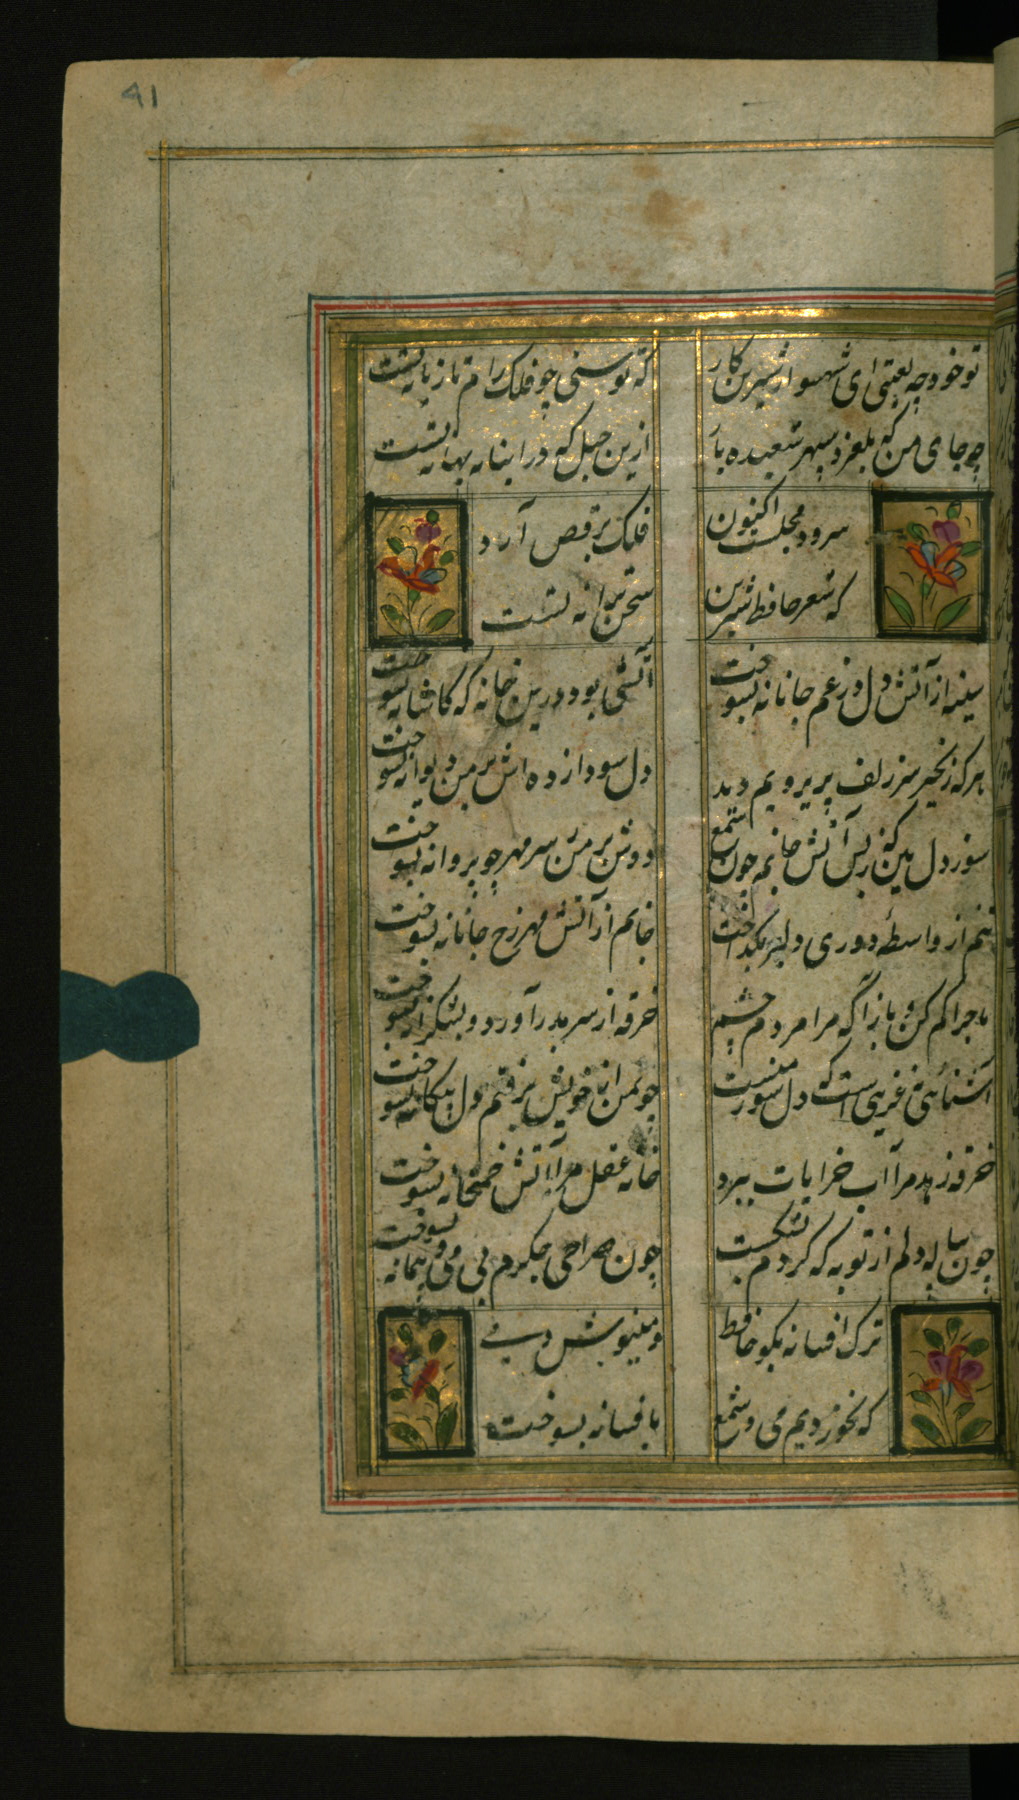 41
تو خود چه لعبتی ای شهسوار شیرین کار
که توسنی چو فلک رام تازیانه تست
چه جای من که بلغزد سپهر شعبده باز
ازین حیل که در انبانه بهانه تست
سرود مجلست اکنون
فلک برقص آرد
که شعر حافظ شیرین
سخن ترانه تست
سینه از آتش دل در غم جانانه بسوخت
آتشی بود درین خانه که کاشانه بسوخت
هر که زنجیر سر زلف پریرویم دید
دل سودازده اش بر من دیوانه بسوخت
سوز دل بین که ز بس آتش جانم چون شمع
دوش بر من ز سر مهر چو پروانه بسوخت
تنم از واسطهٔ دوری دلبر بگداخت
جانم از آتش مهر رخ جانانه بسوخت
ماجرا کم کن و بازآ که مرا مردم چشم
خرقه از سر بدر آورد و بشکرانه بسوخت
آشنائی نه غریبی است که دل سوز منست
چو من از خویش برفتم دل بیگانه بسوخت
خرقه زهد مرا آب خرابات ببرد
خانه عقل مرا آتش خمخانه بسوخت
چون پیاله دلم از توبه که کردم بشکست
چون صراحی جگرم بی می و پیمانه بسوخت
ترک افسانه بگو حافظ
و می نوش دمی
که نخوردیم می و شمع
بافسانه بسوخت